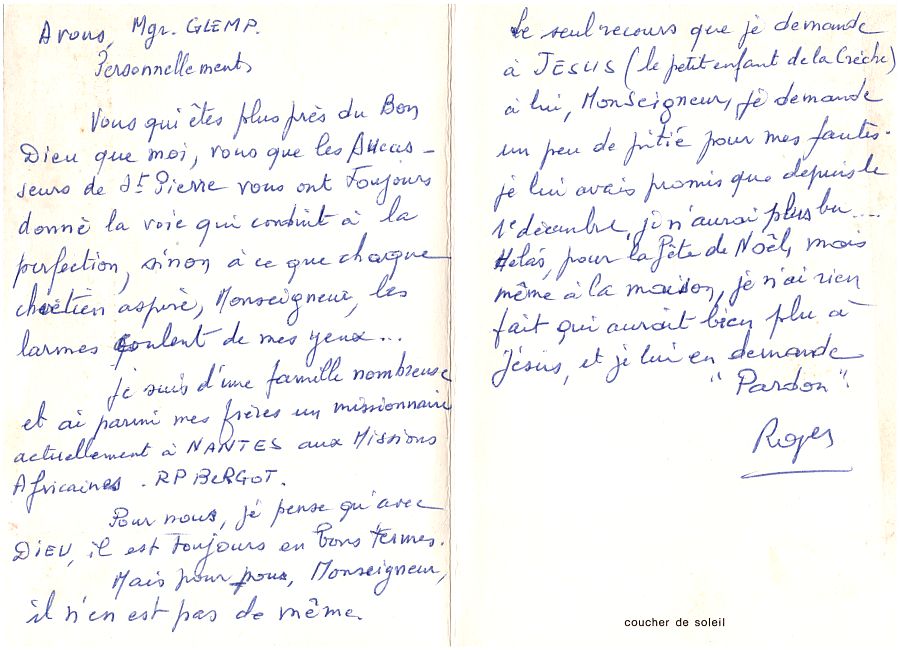 A vous, Mgr. GLEMP.
Personnellement,
Vous qui êtes plus près du Bon
Dieu que moi, vous que les Succes-
seurs de St Pierre vous ont Toujours
donné la voie qui conduit à la
perfection, sinon à ce que chaque
chrétien aspire, Monseigneur, les
larmes coulent de mes yeux...
je suis d'une famille nombreuse
et ai parmi mes frères un missionnaire
actuellement à NANTES aux Missions
Africaines. RP BERGOT.
Pour nous, je pense qu'avec
DIEU, il est Toujours en bons Termes.
Mais pour nous, Monseigneur,
il n'en est pas de même.
Le seul recours que je demande
à JESUS (le petit enfant de la Crèche)
à lui, Monseigneur, je demande
un peu de pitié pour mes fautes.
je lui avais promis que depuis le
1er décembre, je n'aurai plus bu....
Hélas, pour la fête de Noël, mais
même à la maison, je n'ai rien
fait qui aurait bien plu à
Jésus, et je lui en demande
"Pardon".
Roger
coucher de soleil